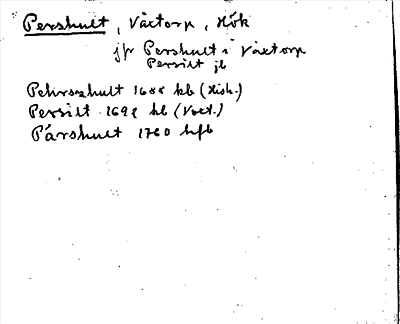 Pershult, Växtorp, Hök
jfr Pershult i Växtorp
Persilt jb
Pehrszhult 1688 kb (Hish.)
Persilt 1692 kb (Voxt.)
Pärshult 1760 hfb